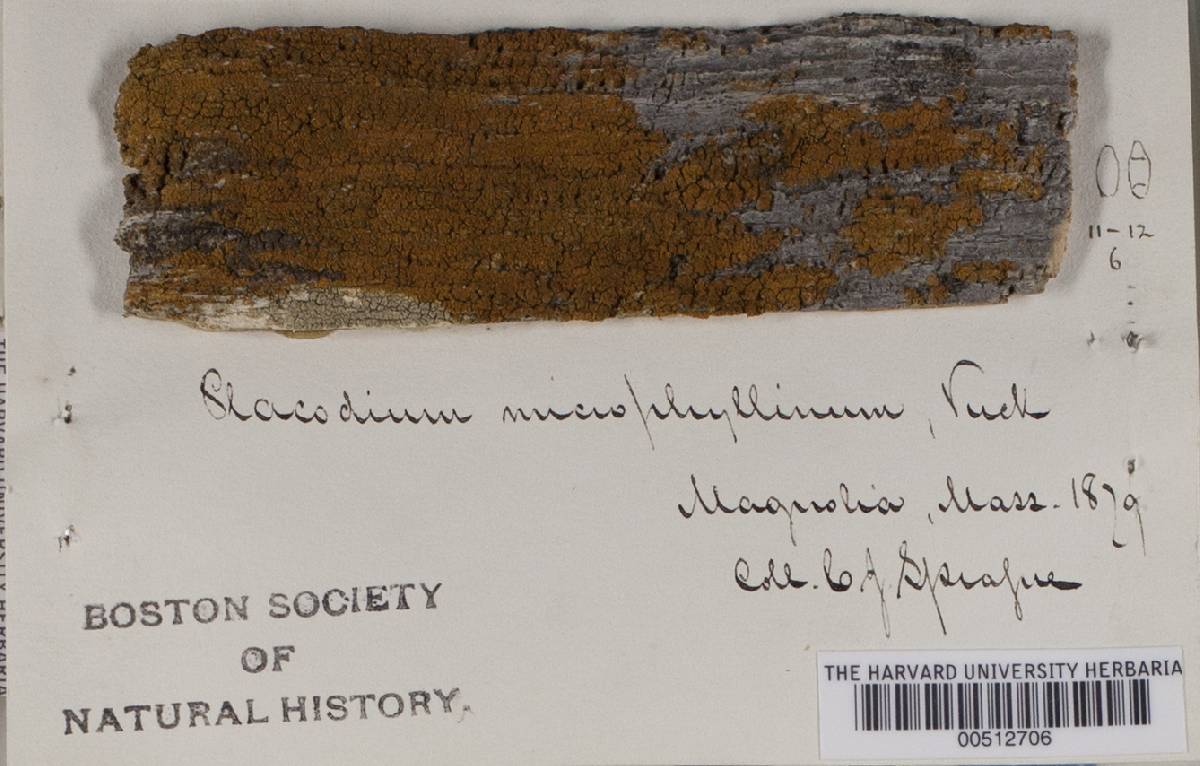 11-12
6
Placodium microphyllinum, Tuck
Magnolia, Mass. 1879
Coll. C J Sprague
BOSTON SOCIETY
OF
NATURAL HISTORY.
THE HARVARD UNIVERSITY HERBARIA
00512706
THE HARVARD UNIVERSITY HERBARIA